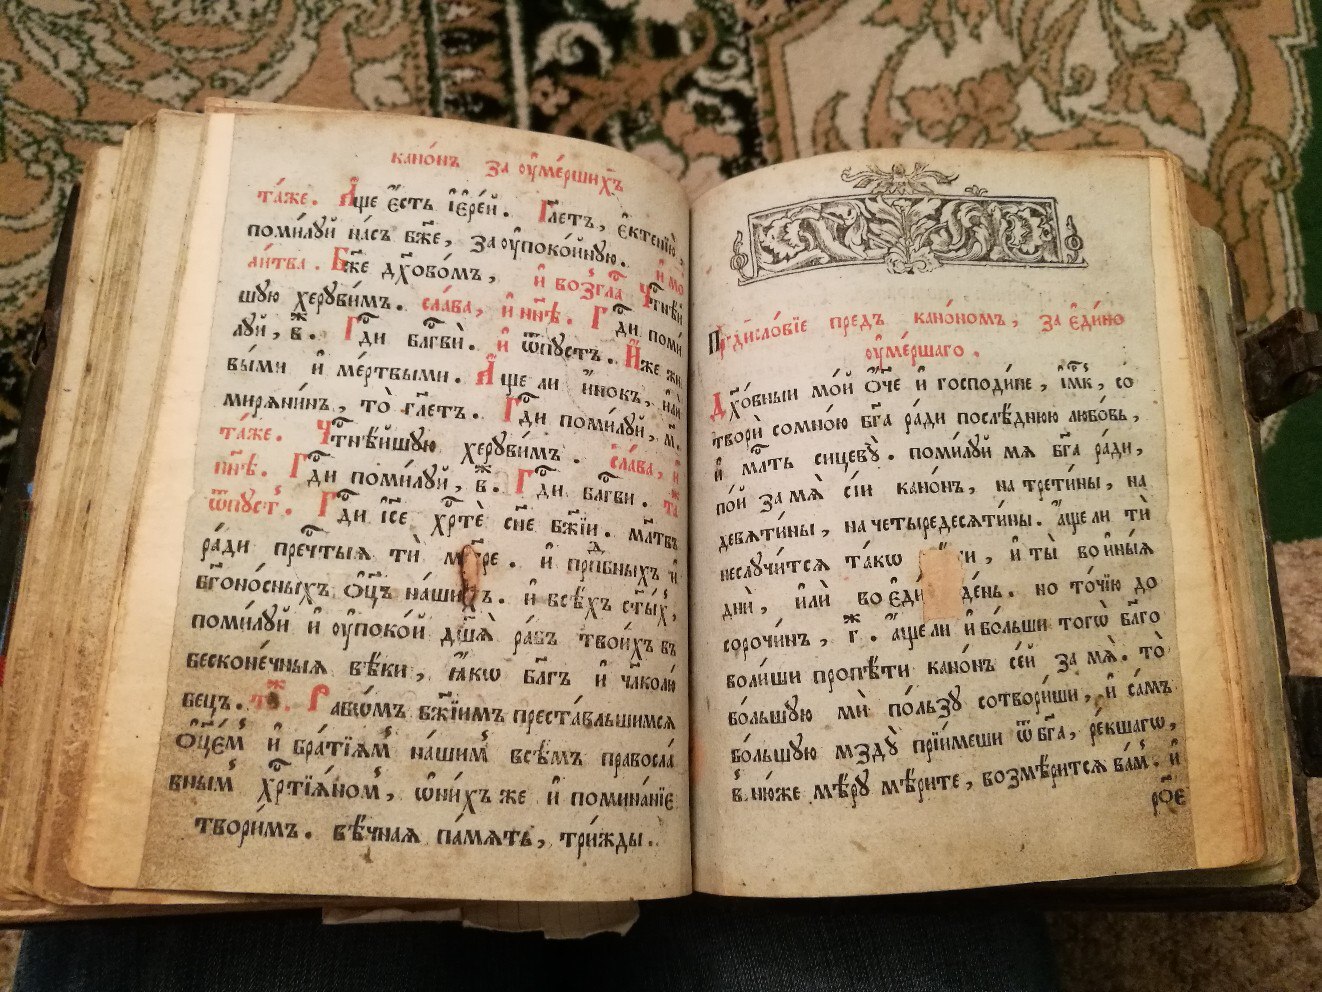 кано́нъ за ᲂу҆ме́ршихъ
та́же. А҆́ще є҆́сть і҆ере́й. Гл҃етъ, є҆ктенїю̀
поми́лꙋй на́съ бж҃е, за ᲂу҆поко́йнꙋю. и҆ мо
ли́тва. Бж҃е дх҃ово́мъ, и҆ возгла Чтⷭ҇нѣ́й
шꙋю херꙋви́мъ. сла́ва, и҆ нн҃ѣ. Гдⷭ҇и поми́
лꙋй, в҃ж. Гдⷭ҇и блг҃вѝ. и҆ ѿпꙋстъ. И҆́же жи
вы́ми и҆ ме́ртвыми. А҆́ще ли и҆́нокъ, и҆лѝ
мирѧни́нъ, то̀ гл҃етъ. Гдⷭ҇и поми́лꙋй, м҃.
та́же. Чтⷭ҇нѣ́йшꙋю херꙋви́мъ. сла́ва, и҆
нн҃ѣ. Гдⷭ҇и поми́лꙋй, в҃ж. Гдⷭ҇и блг҃ви. таж
ѿпꙋстъ. Гдⷭ҇и і҆с҃е хрⷭ҇тѐ сн҃е бж҃їи. мл҃твъ
ра́ди преч҃тыѧ тѝ мт҃ре. и҆ прпⷣбныхъ и҆
бг҃оно́сныхъ ѻ҆ц҃ъ на́шихъ. и҆ всѣ́хъ ст҃ы́хъ,
поми́лꙋй и҆ ᲂу҆поко́й дш҃ѧ̀ ра́бъ твои́хъ въ
бесконе́чныѧ вѣ́ки, ꙗ҆́кѡ бл҃гъ и҆ чл҃колю́
бецъ. таж. Рабѡ́мъ бж҃їимъ преста́вльшимсѧ
ѻ҆ц҃є́мъ и҆ бра́тїѧмъ на́шимъ всѣ́мъ правосла́
внымъ хрⷭ҇тїѧ́номъ, ѡ҆ни́хъ же и҆ помина́нїе
твори́мъ. вѣ́чнаѧ па́мѧть, три́жды.
Предисло́вїе предъ кано́номъ, за є҆ди́но
ᲂу҆ме́ршаго.
Дх҃о́вныи мо́й ѻ҆́ч҃е и҆ господи́не, і҆мⷬ҇к, со
творѝ сомно́ю бг҃а ра́ди послѣ́днюю любо́вь,
и҆ мл҃ть сицевꙋ̀. поми́лꙋй мѧ бг҃а ра́ди,
по́й за мѧ̀ сі́и кано́нъ, на трети́ны, на
девѧти́ны, на четыредесѧти́ны. а҆́ще ли тѝ
неслꙋчи́тсѧ та́кѡ и, и҆ ты̀ во и҆ны́ѧ
днѝ, и҆лѝ во де́нь. но то́чїю до
сорочи́нъ, г҃ж. а҆́ще ли и҆ бо́льши тогѡ̀ бл҃го
воли́ши пропѣ́ти кано́нъ се́й за мѧ̀. то̀
бо́льшꙋю мѝ по́льзꙋ сотвори́ши, и҆ са́мъ
бо́льшꙋю мздꙋ̀ прїи́меши ѿ бг҃а, ре́кшагѡ,
в̾ ню́же мѣ́рꙋ мѣ́рите, возмѣ́ритсѧ ва́мъ. и҆
рѻ҃е